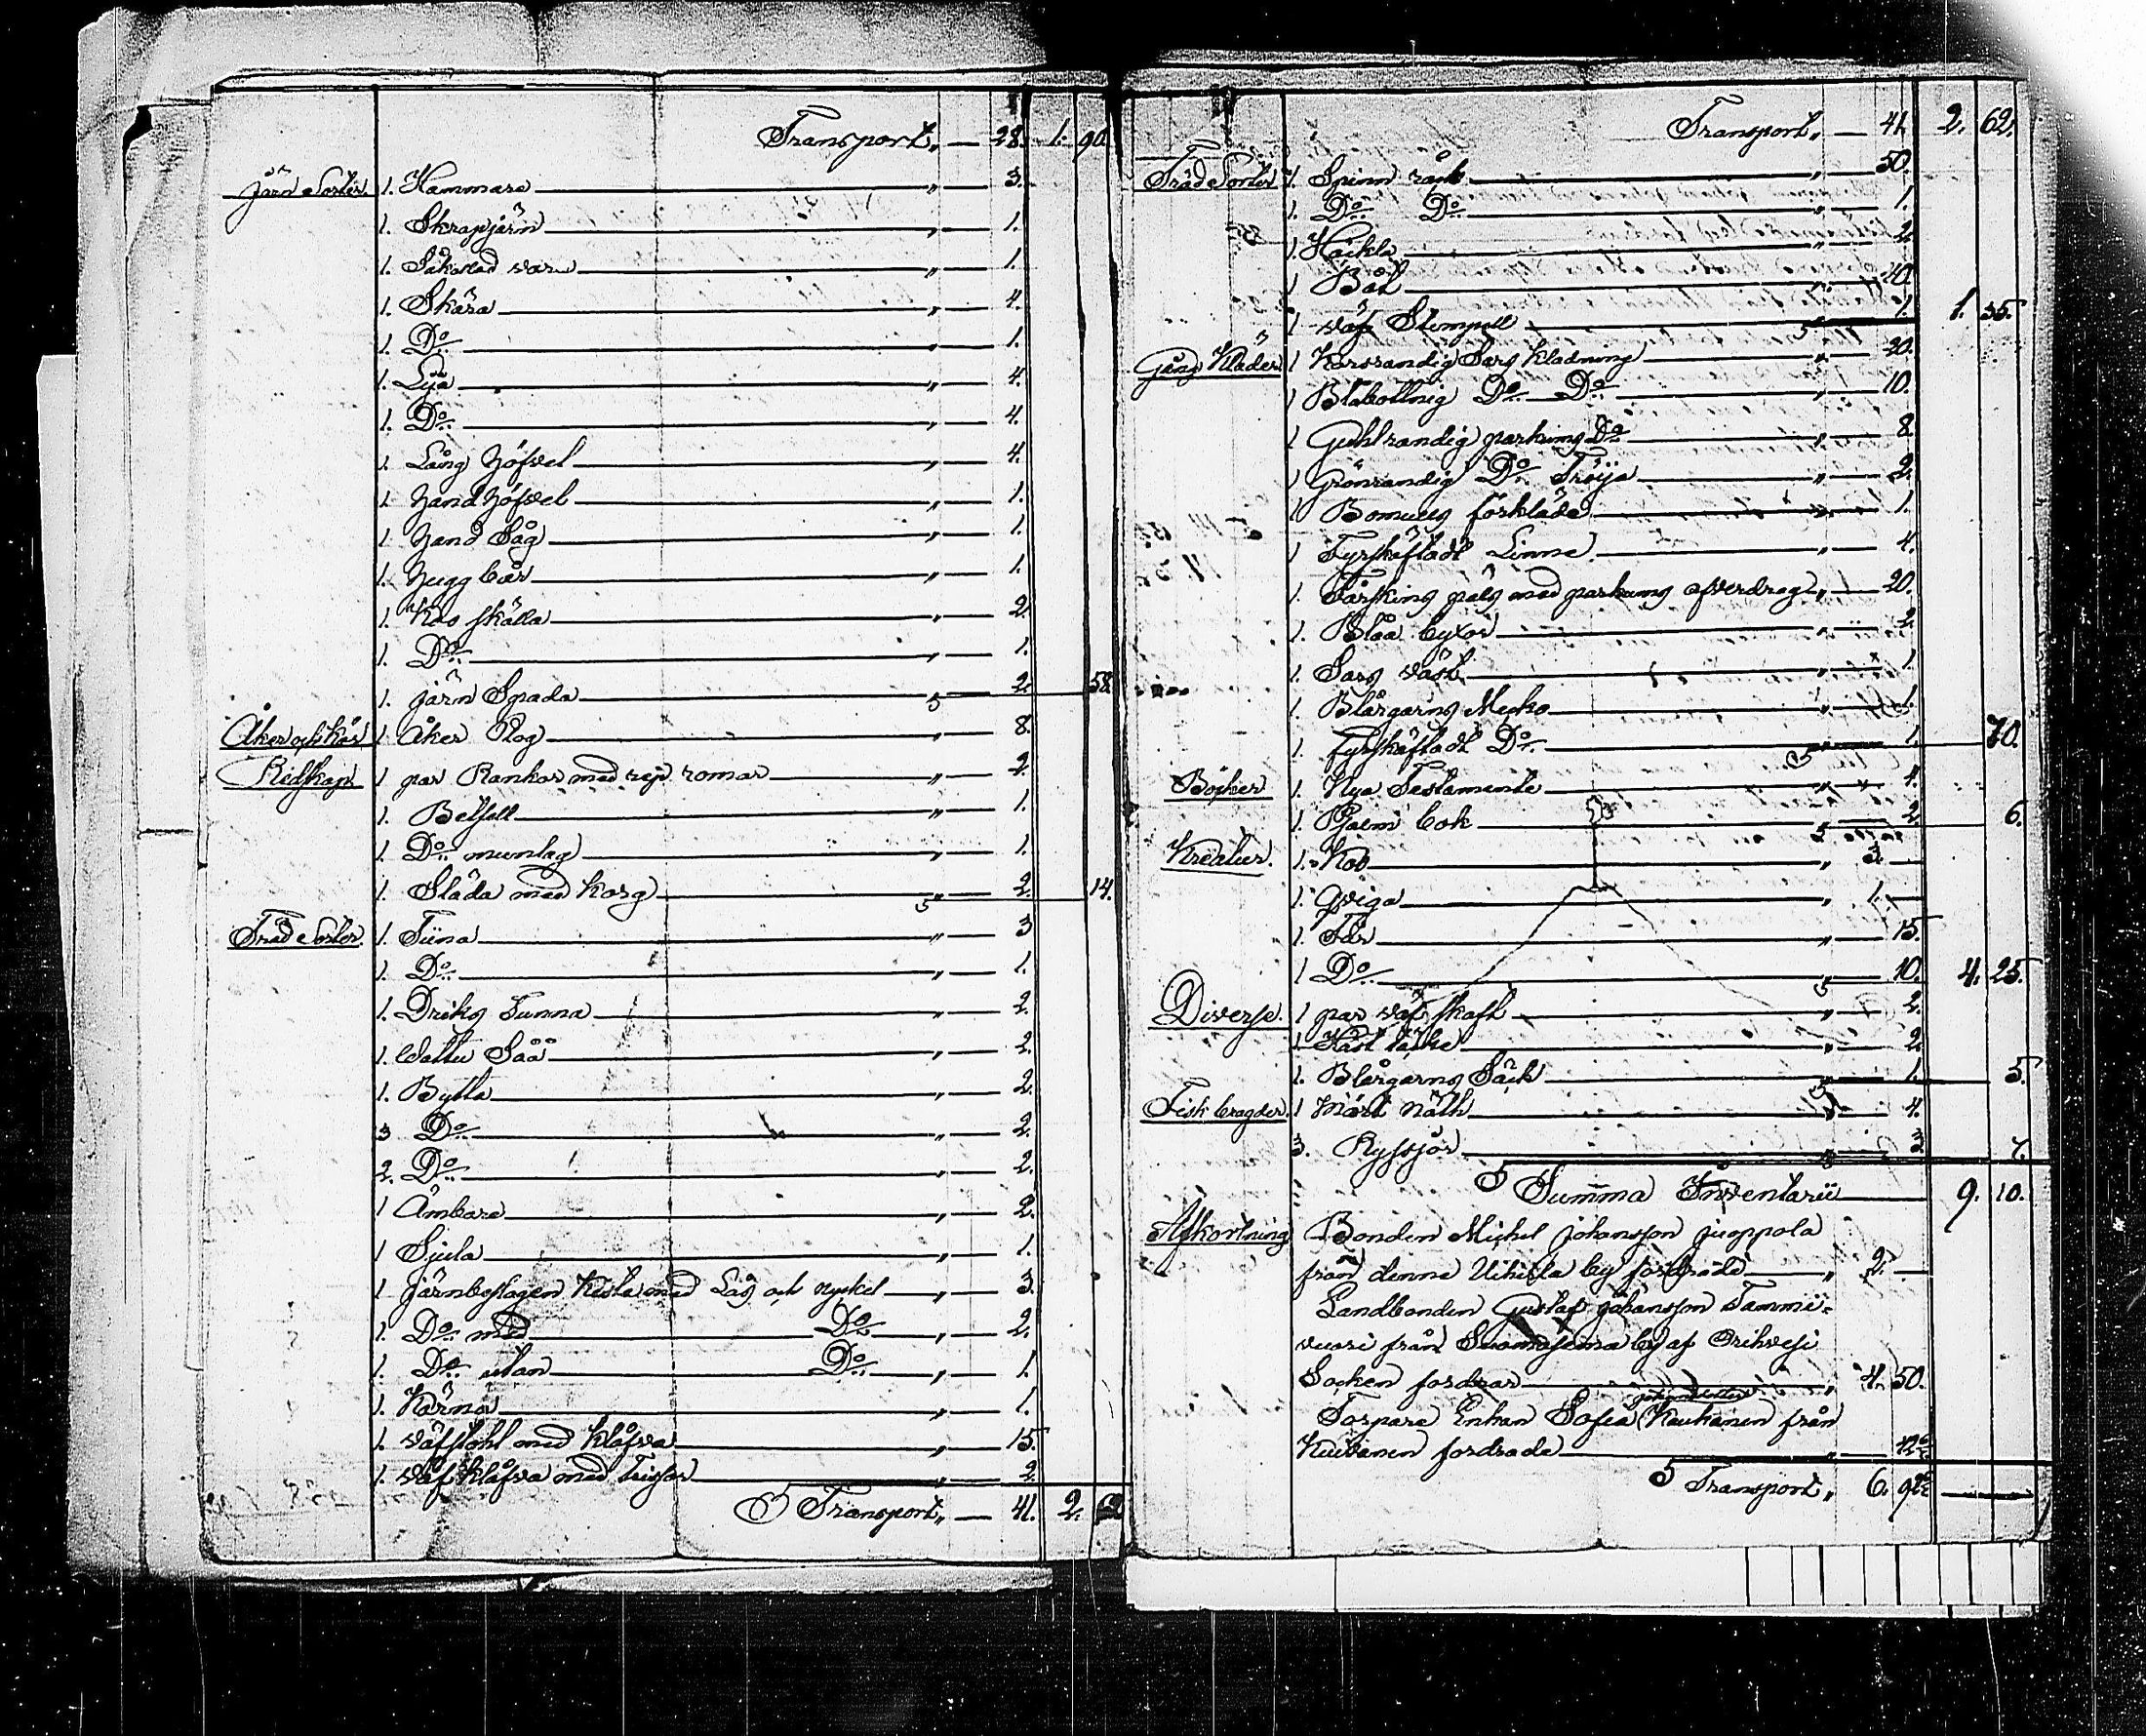 Transport „ — 28. 1. 90.
Järn Sorter. 1. Hammare „ — 3.
1. Skrapjärn „ — 1.
1. „ — 1.
1. Skära „ — 4.
1. Do „ — 1.
1. Lya „ — 4.
1. Do „ — 4.
1. Lång Höfvel „ — 4.
1. Hand Höfvel „ — 1.
1. Hand Såg „ — 1.
1. Hugg bår „ — 1.
1. Koo skälla „ — 2.
1. Do „ — 1.
1. järn Spada „ — 2. 58.
Åker och kör 1 Åker Plog „ — 8.
Redskap. 1 par Rankor med rep romar „ — 2.
1. Betsell „ — 1.
1. Do munlag „ — 1.
1. Släda med Korg „ — 2. 14.
Träd Sorter. 1. Tiina „ — 3
1. Do „ — 1.
1. Driks Tunna „ — 2.
1. Wattu Såå „ — 2.
1. Bytta „ — 2.
3 Do „ — 2.
2. Do „ — 2.
1 Ämbare „ — 2.
1 Sjula „ — 1.
1 järnbeslagen Kista med Lås och nyckel „ — 3.
1. Do med Do „ — 2.
1. Do utan Do „ — 1.
1. Kärna „ — 1.
1. väfstohl med Klåfva „ — 15.
1. väf klåfva med Trissor „ — 2.
Transport „ — 41. 2. 62
Transport „ — 41. 2. 62.
Träd Sorter 1. Spinn råck „ — 50.
1. Do Do „ — 1.
1 Häckla „ — 2
1 Båt „ — 40.
1 väf Stempell „ — 1. 1. 35.
Gång Kläder 1 Korsrandig Sarg Kladning „ — 20.
1 Blåbottnig Do Do „ — 10.
1 Guhlrandig parkums Do „ — 8
1 Grönrandig Do Tröija „ — 2.
1 Bomulls förkläde „ — 1.
1 Fyrskäftadt Linne „ — 4.
1. Fårskins päls med parkums öfverdrag „ — 20.
1. Blåa byxor „ — 2.
1. Sarg väst „ — 1.
1. Blårgarns Mecko „ — 1.
1. Fyrskäftadt Do „ — 1. 70.
Böcker 1. Nya Testamente „ — 4.
1. Psalm bok „ — 2. 6.
Kreatur. 1. Koo „ 3. —
1. Qviga „ 1. —
1. Får „ — 15.
1 Do „ — 10. 4. 25.
Diverse. 1 par väf skaft „ — 2.
1 Häst täcke „ — 2.
1. Blårgarns Säck „ — 1. 5.
Fisk bragder. 1 Mört Näth „ — 4.
3. Ryssjor „ — 3 7.
Summa Inventarii 9. 10.
Afkortning Bonden Michel Johansson Juoppola
från denne Uiherla by fordrade „ 2. —
Landbonden Gustaf Johansson Tammi-
vuori från Suomasema by af Orihvesi
Socken fordrar „ 4. 50.
Torpare Enkan Sofia Kaukanen från
Kuivanen fordrade „ — 42
Transport „ 6. 92